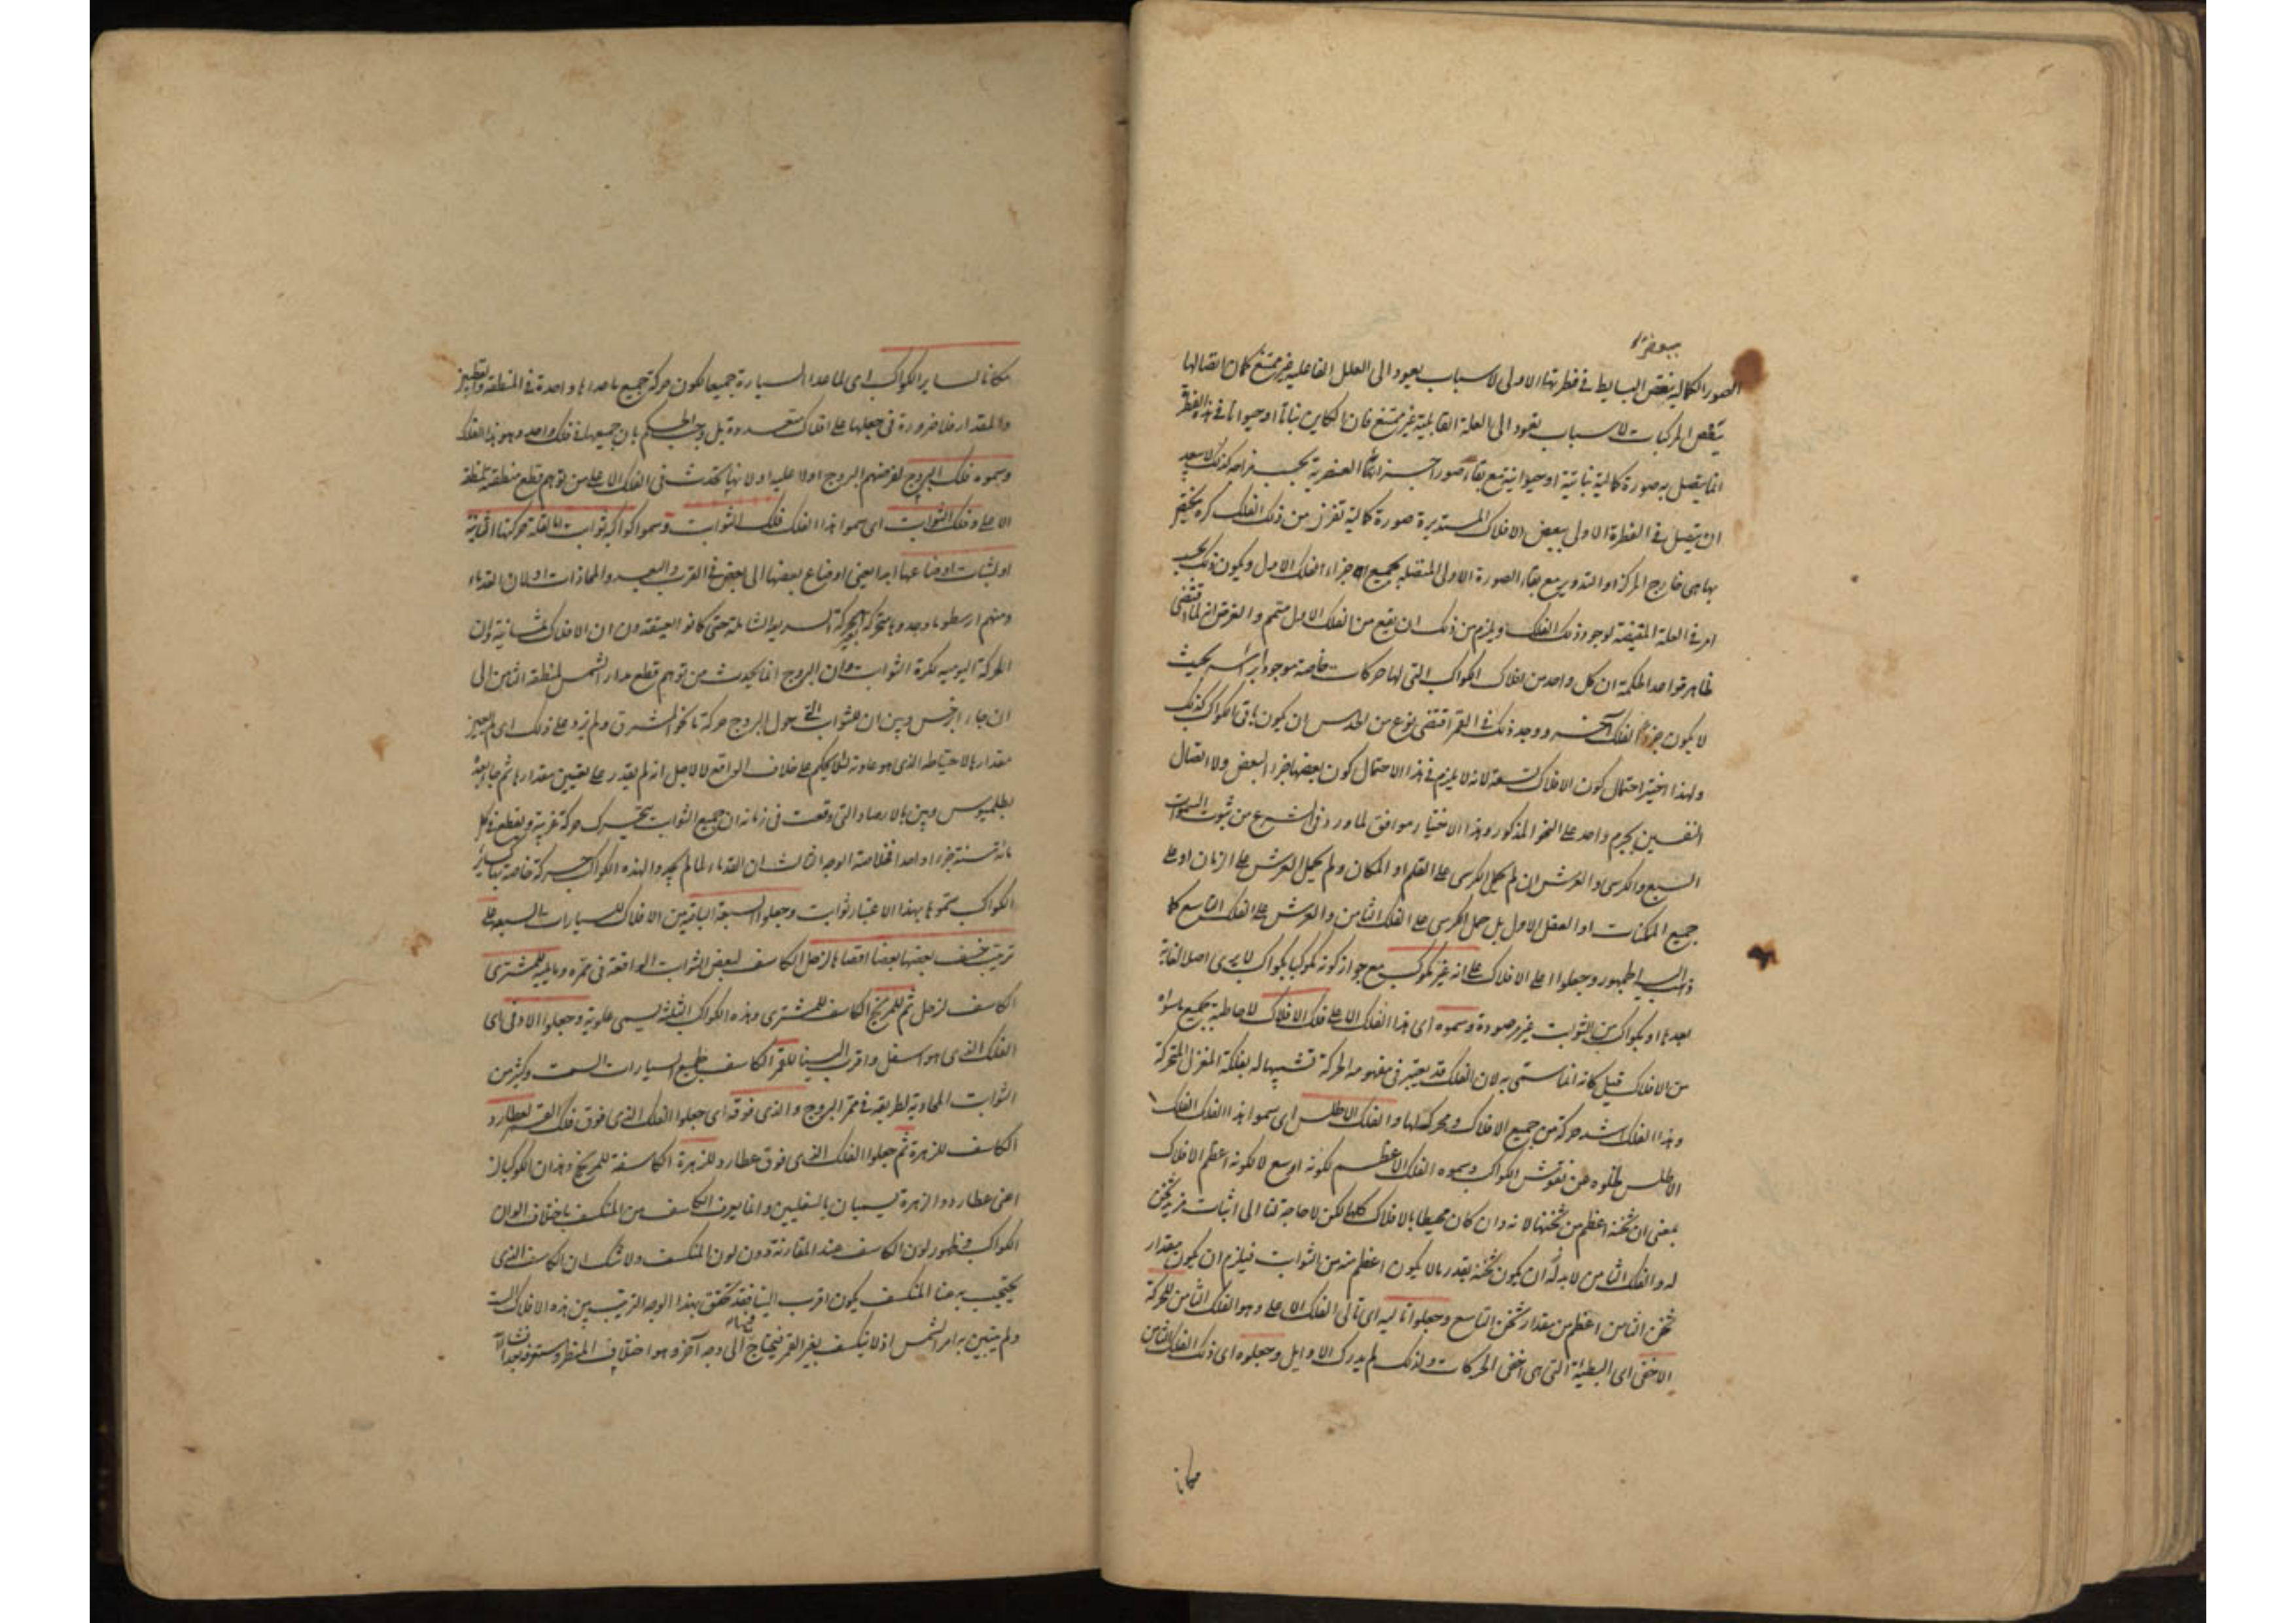 ببعض
الصور الكمالية ببعض البسايط في فطرتها الاولى لاسباب يعود الى العلل الفاعلية غير ممتنع كما ان اتصالها
ببعض المركبات لاسباب تعود الى العلة القابلية غير ممتنع فان الكاين نباتا او حيوانا في هذه الفطرة
انما يتصل به صورة كمالية نباتية او حيوانية مع بقاء صور اجزائها العنصرية بحسب مزاجه كذلك لا يبعد
ان يتصل في الفطرة الاولى ببعض الافلاك المستديرة صورة كمالية تفرز من ذلك الفلك كرة يختص
بها هي خارج المركز او التدوير مع بقاء الصورة الاولى المتصلة بجميع اجزاء الفلك الاول ويكون ذلك بحسب
امر في العلة المقتضية لوجود ذلك الفلك ويلزم من ذلك ان يبقى من الفلك الاول متمم والغرض انه لما اقتضى
ظاهر قواعد الحكمة ان كل واحد من افلاك الكواكب التي لها حركات خاصة موجود براسه بحيث
لا يكون جزءا لفلك آخر ووجد ذلك في القمر اقتضى نوع من الحدس ان يكون باقي الكواكب كذلك
ولهذا اختير احتمال كون الافلاك تسعة لانه لا يلزم في هذا الاحتمال كون بعضها جزءا لبعض ولا اتصال
النفسين بجرم واحد على النحو المذكور وهذا الاختيار موافق لما ورد في الشرع من ثبوت السموات
السبع والكرسي والعرش ان لم يحمل الكرسي على القلم او المكان ولم يحمل العرش على الزمان او على
جميع الممكنات او العقل الاول بل حمل الكرسي على الفلك الثامن والعرش على الفلك التاسع كما
ذهب اليه الجمهور وجعلوا اعلى الافلاك على انه غير مكوكب مع جواز كونه مكوكبا بكواكب لا يرى اصلا لغاية
بعدها او بكواكب من الثوابت غير مرصودة وسموه اى هذا الفلك الاعلى فلك الافلاك لاحاطته بجميع ما سواه
من الافلاك قيل كانه انما سمى به لان الفلك قد يعتبر في مفهومه الحركة تشبيها له بفلكة المغزل المتحركة
وهذا الفلك اشد حركة من جميع الافلاك ومحرك لها والفلك الاطلس اى سموا هذا الفلك الفلك
الاطلس لخلوه عن نقوش الكواكب وسموه الفلك الاعظم لكونه اوسع لا لكونه اعظم الافلاك
بمعنى ان ثخنه اعظم من ثخنها لانه وان كان محيطا بالافلاك كلها لكن لا حاجة لنا الى اثبات مزيد ثخن
له والفلك الثامن لا بد له ان يكون ثخنه بقدر ما لا يكون اعظم منه من الثوابت فيلزم ان يكون مقدار
ثخن الثامن اعظم من مقدار ثخن التاسع وجعلوا تاليه اى تالى الفلك الاعلى وهو الفلك الثامن للحركة
الاخفى اى البطيئة التي هي اخفى الحركات ولذلك لم يدركه الاوايل وجعلوه اى ذلك الفلك الثامن
مكانا
مكانا لساير الكواكب اى لما عدا السيارة جميعا لكون حركة جميع ما عداها واحدة في المنطقة والقطبين
والمقدار فلا ضرورة في جعلها على افلاك متعددة بل وجب الحكم بان جميعها في فلك واحد وهو هذا الفلك
وسموه فلك البروج لفرضهم البروج اولا عليه او لانها يحدث في الفلك الاعلى من توهم قطع منطقته لمنطقة
الاعلى وفلك الثوابت اى سموا هذا الفلك فلك الثوابت وسموا كواكبه ثوابت اما لقلة حركتها الثانية
او لثبات اوضاعها ابدا يعني اوضاع بعضها الى بعض في القرب والبعد والمحاذات او لان القدماء
ومنهم ارسطو ما وجدوها متحركة بغير الحركة السريعة الشاملة حتى كانوا يعتقدون ان الافلاك ثمانية وان
الحركة اليومية لكرة الثوابت وان البروج انما يحدث من توهم قطع مدار الشمس لمنطقة الثامن الى
ان جاء ابرخس وبين ان للثوابت التي حول البروج حركة ما نحو المشرق ولم يزد على ذلك اى لم يعين
مقدارها لاحتياطه الذي هو عادته لئلا يحكم على خلاف الواقع لا لاجل انه لم يقدر على تعيين مقدارها ثم جاء بعده
بطلميوس وبين بالارصاد التي وقعت في زمانه ان جميع الثوابت يتحرك حركة غربية ويقطع في كل
مائة سنة جزءا واحدا فخلاصة الوجه الثالث ان القدماء لما لم يجدوا لهذه الكواكب حركة خاصة كساير
الكواكب سموها بهذا الاعتبار ثوابت وجعلوا السبعة الباقية من الافلاك للسيارات السبعة على
ترتيب خسف بعضها بعضا اقصاها لزحل الكاسف لبعض الثوابت الواقعة في ممره وما يليه للمشترى
الكاسف لزحل ثم للمريخ الكاسف للمشترى وهذه الكواكب الثلثة يسمى علوية وجعلوا الادنى اى
الفلك الذي هو اسفل واقرب الينا للقمر الكاسف لجميع السيارات الست وكثير من
الثوابت المحاذية لطريقه في ممر البروج والذي فوقه اى جعلوا الفلك الذي فوق فلك القمر لعطارد
الكاسف للزهرة ثم جعلوا الفلك الذي فوق عطارد للزهرة الكاسفة للمريخ وهذان الكوكبان
اعنى عطارد والزهرة يسميان بالسفليين وانما يعرف الكاسف من المنكسف باختلاف الوان
الكواكب وظهور لون الكاسف عند المقارنة دون لون المنكسف ولا شك ان الكاسف الذي
يحتجب به عنا المنكسف يكون اقرب الينا فقد تحقق بهذا الوجه الترتيب بين هذه الافلاك الست
ولم يتبين به امر الشمس اذ لا ينكسف بغير القمر فيحتاج الى وجه آخر وهو اختلاف المنظر وستعرفه بعد